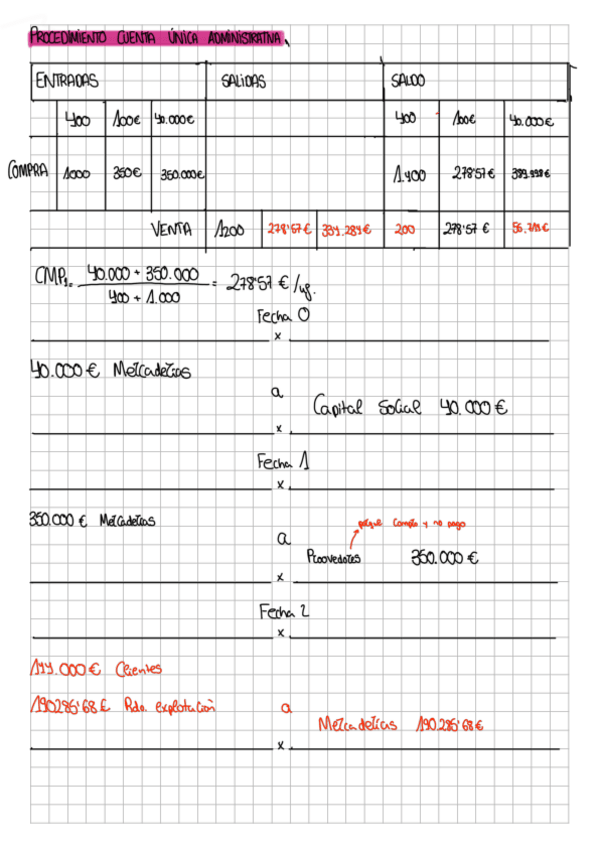 PROCEDIMIENTO CUENTA ÚNICA ADMINISTRATIVA
ENTRADAS SALIDAS SALDO
400 100€ 40.000€ 400 100€ 40.000€
COMPRA 1000 350€ 350.000€ 1.400 278'57€ 389.998€
VENTA 1200 278'57€ 334.284€ 200 278'57 €
CMP1 = 40.000 + 350.000 / 400 + 1.000 = 278'57 €/ug.
Fecha 0
x
40.000 € Mercaderias
a
Capital Social 40.000 €
x
Fecha 1
x
350.000 € Mercaderias
porque compro y no pago
a
Proovedores 350.000 €
x
Fecha 2
x
€ Clientes
190286'68 £ Rdo. explotación a
Mercaderias 190.286'68 €
x